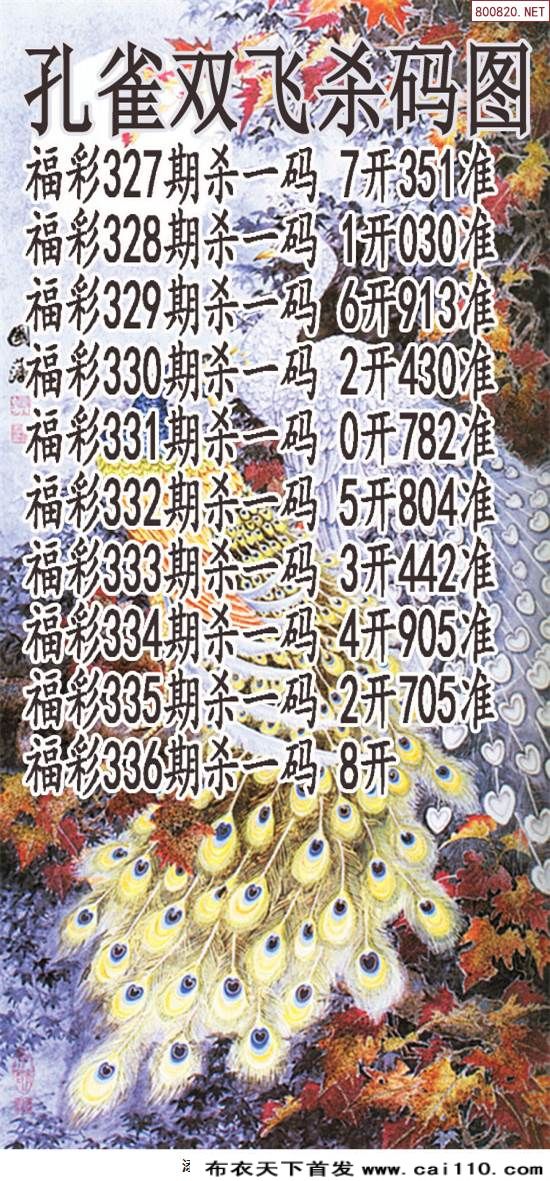 800820.NET
孔雀双飞杀码图
福彩327期杀一码 7开351准
福彩328期杀一码 1开030准
福彩329期杀一码 6开913准
福彩330期杀一码 2开430准
福彩331期杀一码 0开782准
福彩332期杀一码 5开804准
福彩333期杀一码 3开442准
福彩334期杀一码 4开905准
福彩335期杀一码 2开705准
福彩336期杀一码 8开
布衣天下首发 www.cai110.com